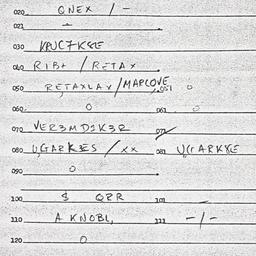 020 QNEX / -
021 -
030
040 RIB+ / RETAX
050 RETAXLAX / MAPLOVE 051 0
060 0 061 0
070 VER3MD1K3R 071
080 UGARKES / XX 081 UGARKXE
090 0
100 $ QRR 101
110 A KNOBL, 111 -/-
120 0